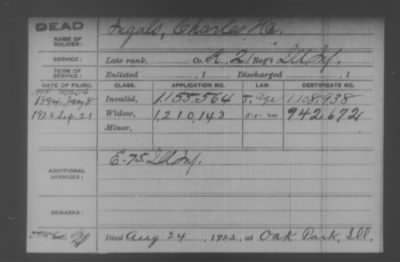 DEAD
NAME OF SOLDIER: Ingals, Charles H.
SERVICE: Late rank, Co. K, 21 Reg't Ill Inf.
TERM OF SERVICE: Enlisted , 1 Discharged , 1
DATE OF FILING. CLASS. APPLICATION NO. LAW. CERTIFICATE NO.
1894 Jany 8 Invalid, 1155,564 1108,938
1923 Sep. 21 Widow, 1,210,143 942,672
Minor,
ADDITIONAL SERVICES: E-75 Ill Inf.
REMARKS:
Died Aug 24, 1923, at Oak Park, Ill.